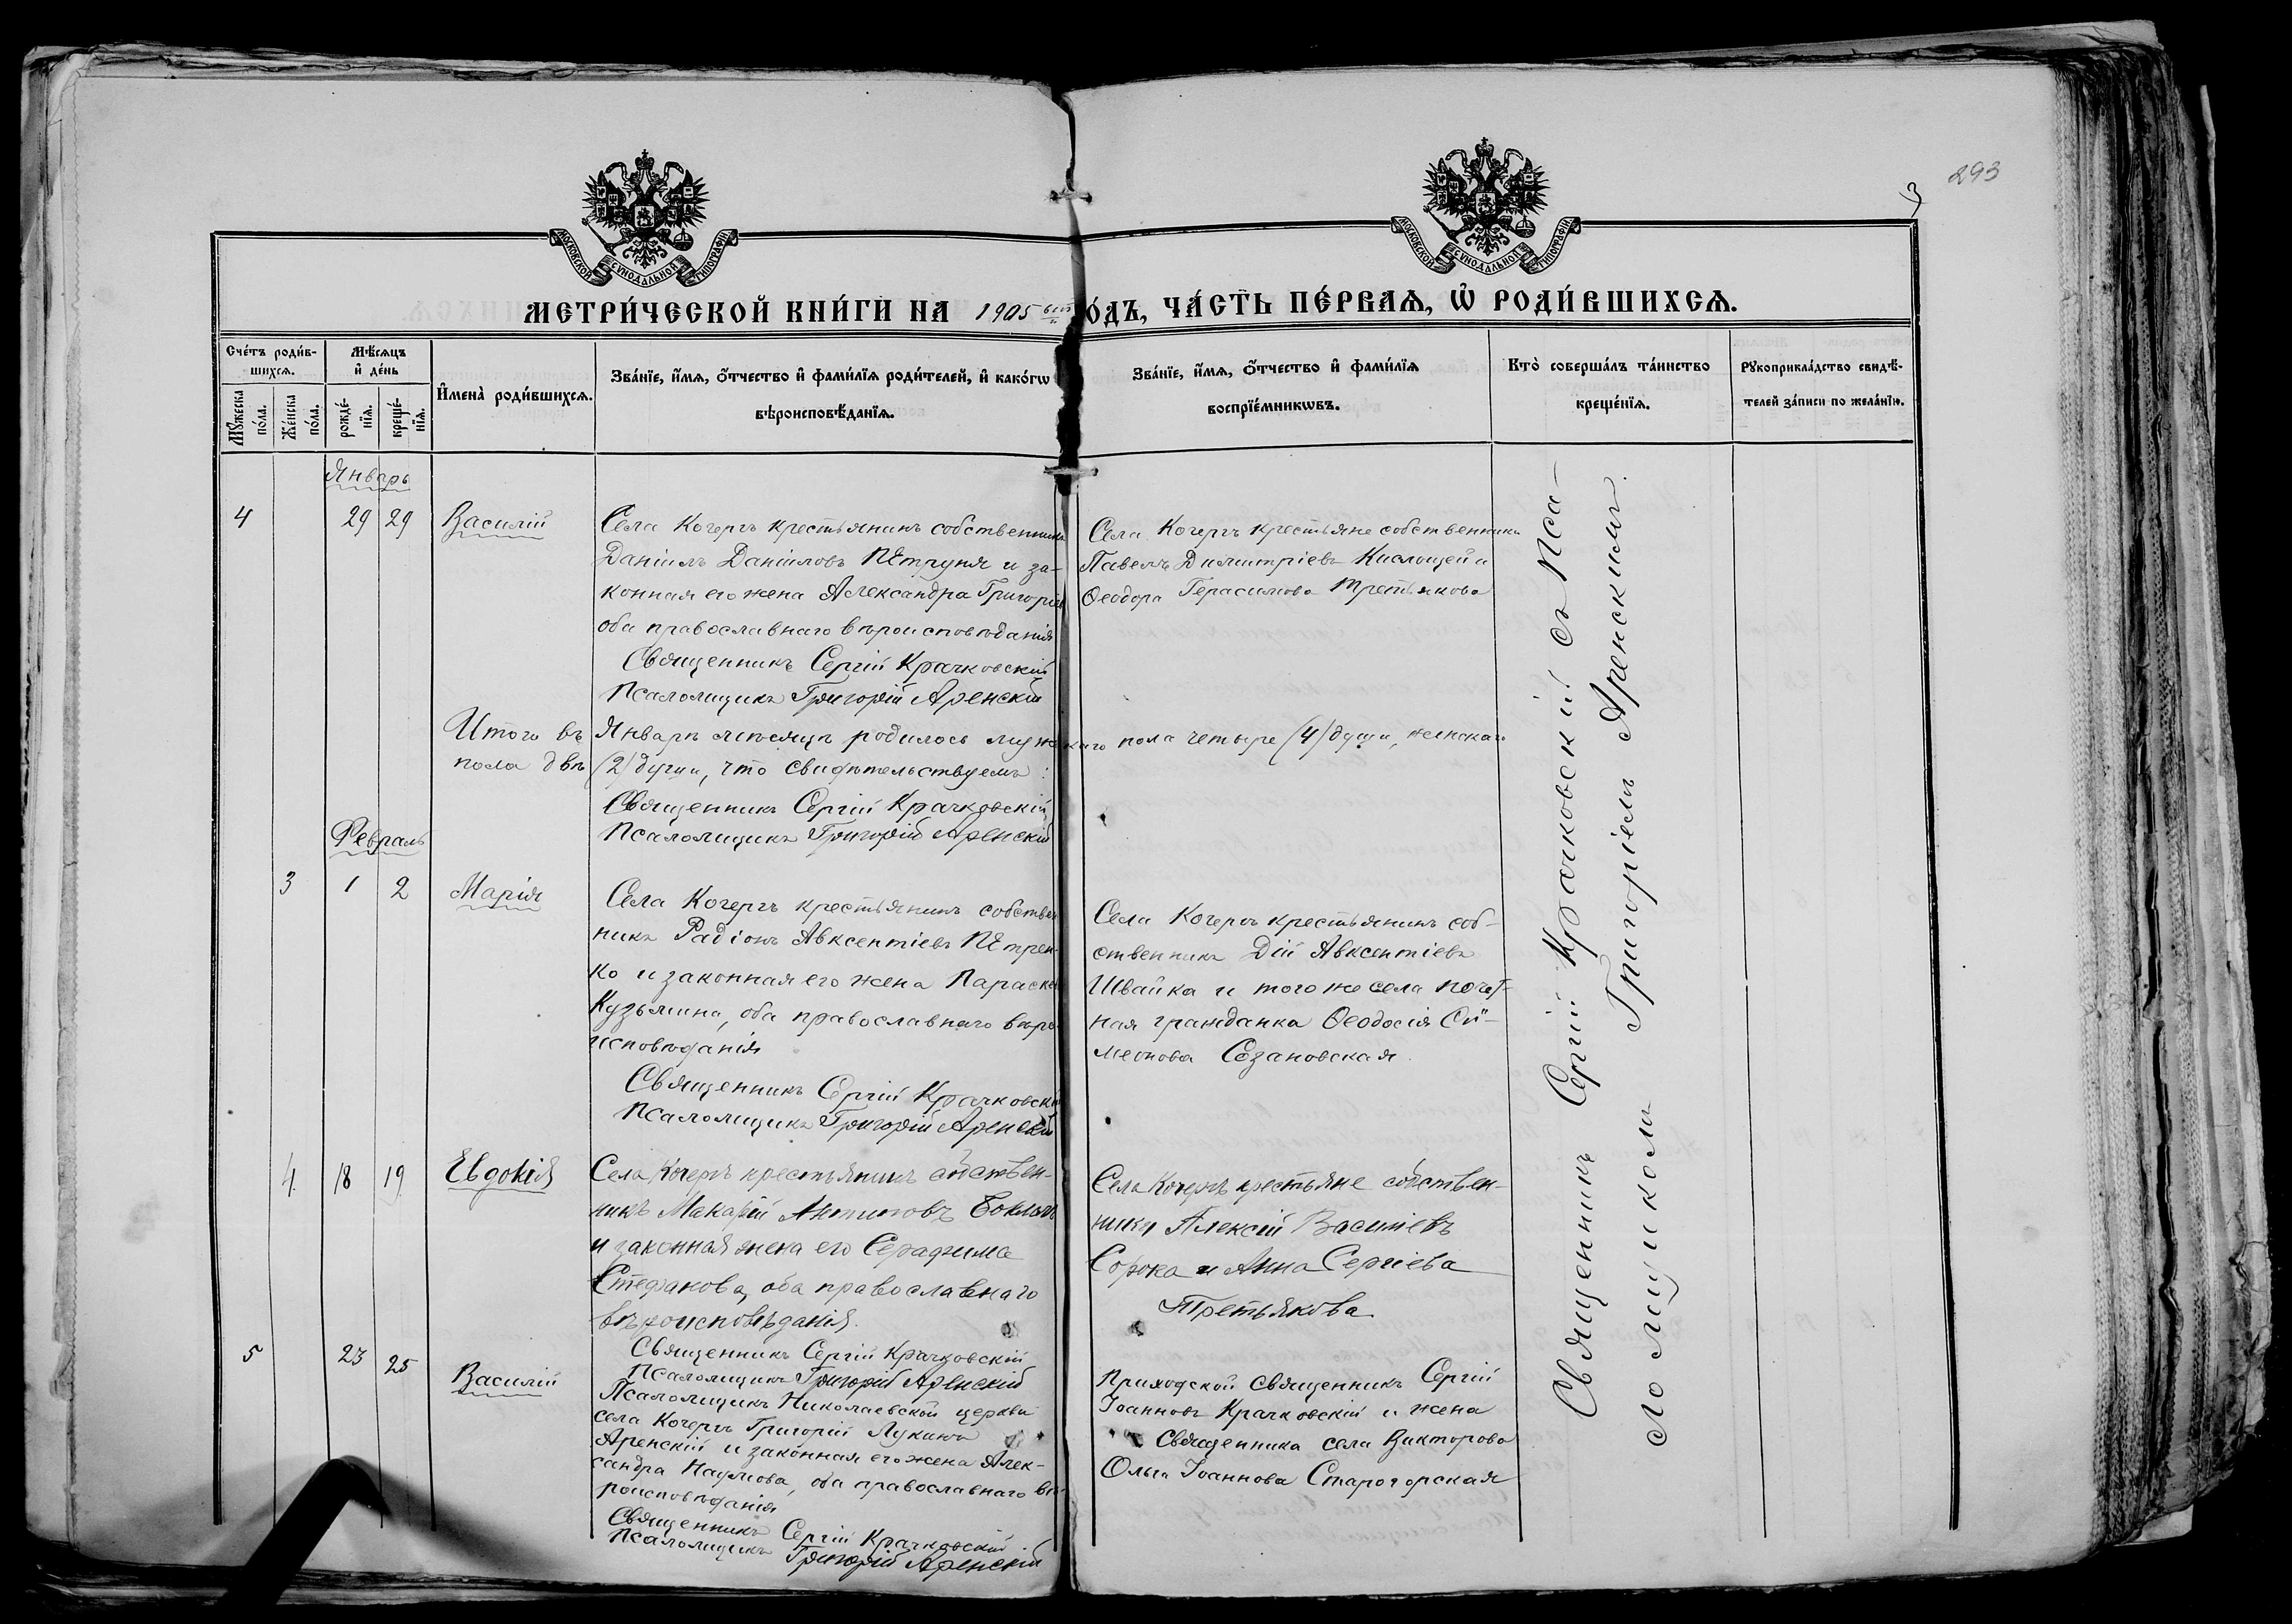 293
3
МОСКОВСКОЙ СѴНОДАЛЬНОЙ ТИПОГРАФІИ
МОСКОВСКОЙ СѴНОДАЛЬНОЙ ТИПОГРАФІИ
МЕТРИ́ЧЕСКОЙ КНИ́ГИ НА 1905 ОДЪ, ЧА́СТЬ ПЕ́РВАЯ, Ѡ РОДИ́ВШИХСЯ.
Сче́тъ роди́в-
шихся.
Му́жеска по́ла.
Же́нска по́ла.
Мѣ́сяцъ
и де́нь
рожде́-
нїя.
креще́-
нїя.
Имена̀ роди́вшихся.
Зва́нїе, и́мя, о́тчество и фами́лїя роди́телей, и како́гѡ
вѣроисповѣ́данїя.
Зва́нїе, и́мя, о́тчество и фами́лїя
воспрїе́мникѡвъ.
Кто̀ соверша́лъ та́инство
креще́нїя.
Рꙋкоприкла́дство свидѣ́-
телей за́писи по жела́нїю.
Январь
4 29 29 Василій
Села Кочергъ крестьянинъ собственникъ
Даніилъ Даніиловъ Петруня и за-
конная его жена Александра Григоріев
оба православнаго вѣроисповѣданія
Священникъ Сергій Крачковскій
Псаломщикъ Григорій Аренскій
Села Кочергъ крестьяне собственники
Павелъ Димитріевъ Кислощей и
Ѳеодора Герасимова Третьякова
Итого въ Январѣ мѣсяцѣ родилось мужскаго пола четыре (4) души, женскаго
пола двѣ (2) души, что свидѣтельствуемъ:
Священникъ Сергій Крачковскій
Псаломщикъ Григорій Аренскій
Февраль
3 1 2 Марія
Села Кочергъ крестьянинъ собствен
никъ Радіонъ Авксентіевъ Петрен-
ко и законная его жена Параске
Кузьмина, оба православнаго вѣро
исповѣданія
Священникъ Сергій Крачковскій
Псаломщикъ Григорій Аренскій
Села Кочергъ крестьянинъ соб-
ственникъ Дій Авксентіевъ
Швайка и того же села почет-
ная гражданка Ѳеодосія Си-
меонова Созановская.
4 18 19 Евдокія
Села Кочергъ крестьянинъ собствен-
никъ Макарій Антиповъ
и законная жена его Серафима
Стефанова, оба православнаго
вѣроисповѣданія.
Священникъ Сергій Крачковскій
Псаломщикъ Григорій Аренскій
Села Кочергъ крестьяне собствен-
ники Алексій Василіевъ
Сорока и Анна Сергіева
Третьякова
5 23 25 Василій
Псаломщикъ Николаевской церкви
села Кочергъ Григорій Лукинъ
Аренскій и законная его жена Алек-
сандра Наумова, оба православнаго вѣ-
роисповѣданія
Священникъ Сергій Крачковскій
Псаломщикъ Григорій Аренскій
Приходской Священникъ Сергій
Іоанновъ Крачковскій и жена
Священника села Викторова
Ольга Іоаннова Старогорская
Священникъ Сергій Крачковскій съ Пса-
ломщикомъ Григоріемъ Аренскимъ.